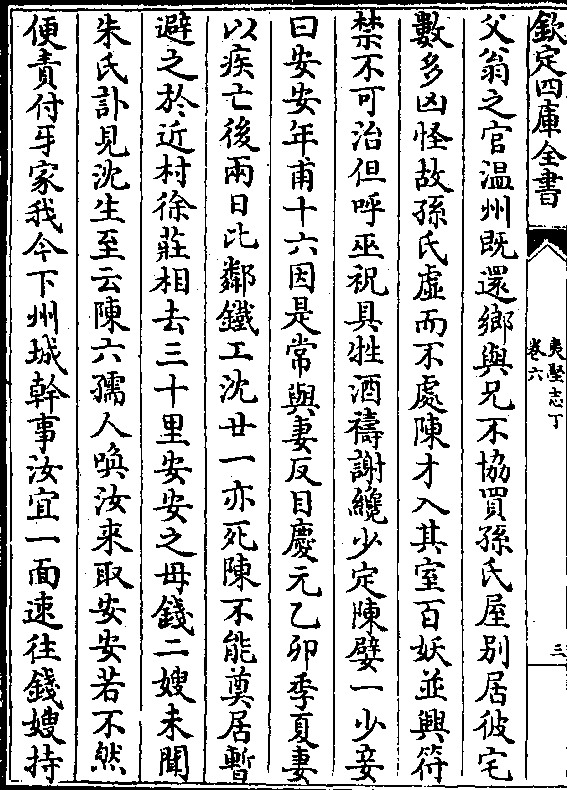 欽定四庫全書
夷堅志丁
卷六
三
父翁之官温州既還鄉與兄不協買孫氏屋别居彼宅
數多凶怪故孫氏虚而不處陳才入其室百妖並興符
禁不可治但呼巫祝具牲酒禱謝纔少定陳嬖一少妾
曰安安年甫十六因是常與妻反目慶元乙卯季夏妻
以疾亡後兩日比鄰鐵工沈廿一亦死陳不能奠居暫
避之於近村徐莊相去三十里安安之母錢二嫂未聞
朱氏訃見沈生至云陳六孺人喚汝來取安安若不然
便責付牙家我今下州城幹事汝宜一面速往錢嫂持